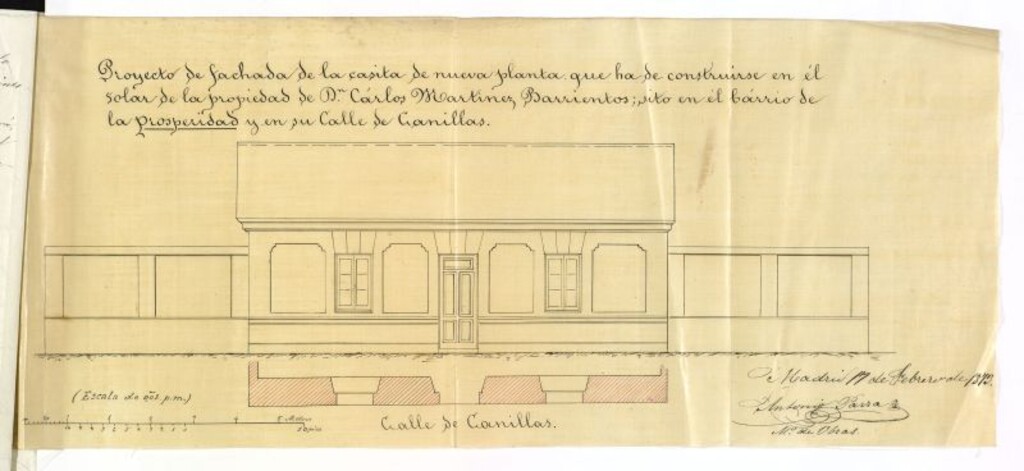 Proyecto de fachada de la casita de nueva planta que ha de construirse en él
solar de la propiedad de Dn Cárlos Martinez Barrientos; sito en él bárrio de
la prosperidad y en su Calle de Canillas.
(Escala de p.m.)
Calle de Canillas.
Madrid 17 de Febrero de
Antonio
Mo. de Obras.